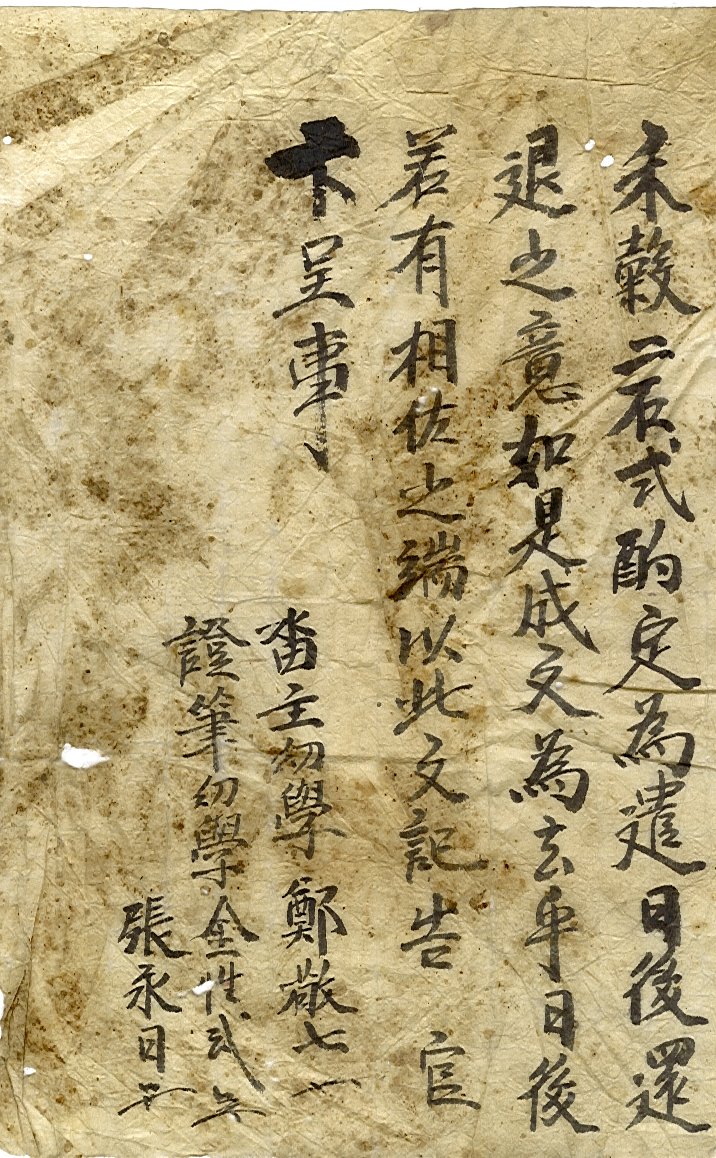 禾穀二石式酌定為遣日後還
退之意如是成文為去乎日後
若有相佐之端以此文記告 官
卞呈事
畓主幼學 鄭敬七
證筆幼學金性式
張永日